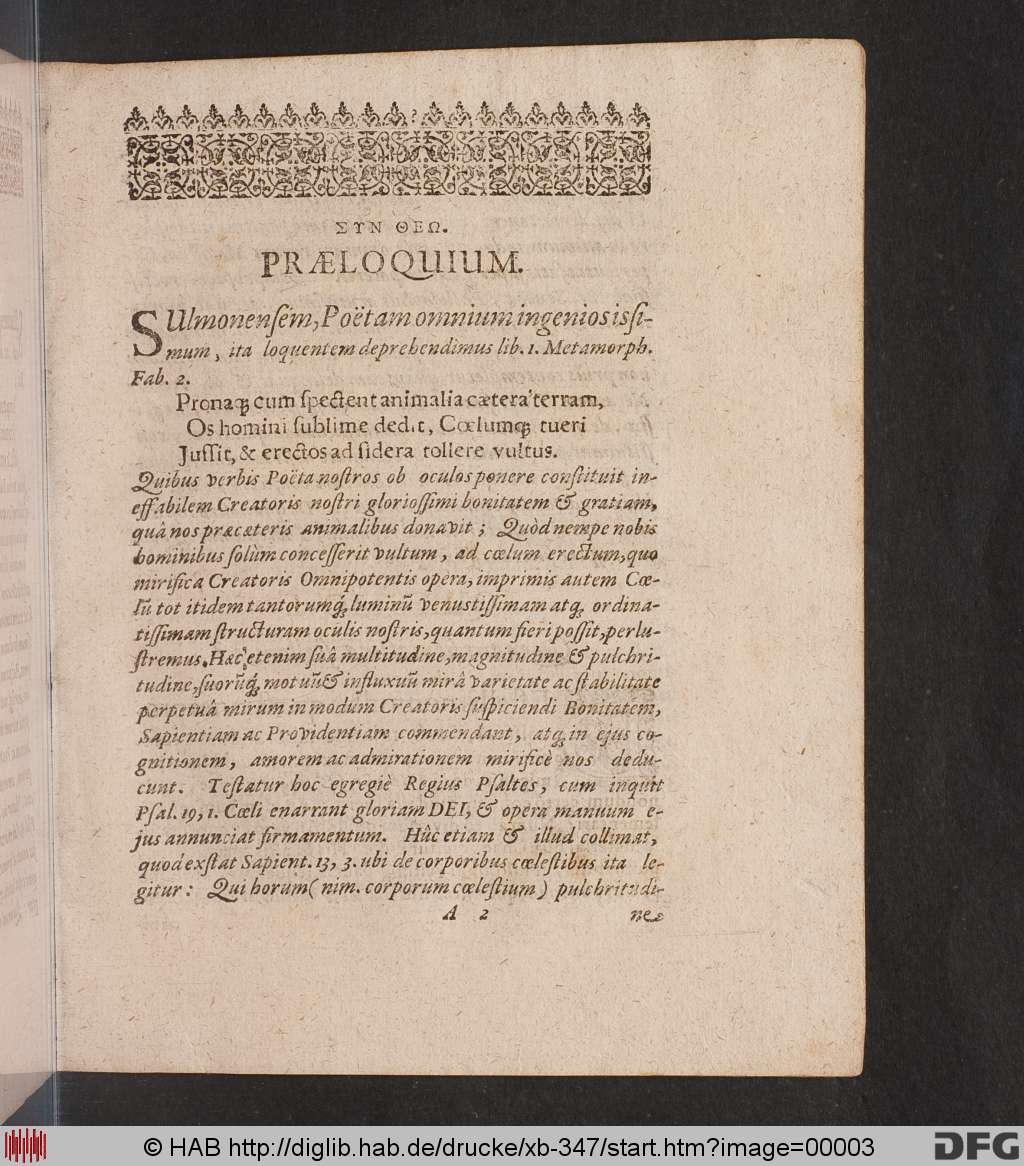 ΣΥΝ ΘΕΩ.
PRÆLOQUIUM.
SUlmonensem, Poëtam omnium ingeniosissi-
mum, ita loquentem deprehendimus lib. 1. Metamorph.
Fab. 2.
Pronaq́; cum spectent animalia cætera terram,
Os homini sublime dedit, Cœlumq́; tueri
Jussit, & erectos ad sidera tollere vultus.
Quibus verbis Poëta nostros ob oculos ponere constituit in-
effabilem Creatoris nostri gloriossimi bonitatem & gratiam,
quâ nos præ cæteris animalibus donavit; Quòd nempe nobis
hominibus solùm concesserit vultum, ad cœlum erectum, quo
mirifica Creatoris Omnipotentis opera, imprimis autem Cœ-
lũ tot itidem tantorumq́; luminũ venustissimam atq; ordina-
tissimam structuram oculis nostris, quantum fieri possit, perlu-
stremus. Hæc etenim suâ multitudine, magnitudine & pulchri-
tudine, suorũq́; motuũ & influxuũ mirâ varietate ac stabilitate
perpetuâ mirum in modum Creatoris suspiciendi Bonitatem,
Sapientiam ac Providentiam commendant, atq; in ejus co-
gnitionem, amorem ac admirationem mirificè nos dedu-
cunt. Testatur hoc egregiè Regius Psaltes, cum inquit
Psal. 19, 1. Cœli enarrant gloriam DEI, & opera manuum e-
jus annunciat firmamentum. Hûc etiam & illud collimat,
quod exstat Sapient. 13, 3. ubi de corporibus cœlestibus ita le-
gitur: Qui horum (nim. corporum cœlestium) pulchritudi-
A 2 ne
© HAB http://diglib.hab.de/drucke/xb-347/start.htm?image=00003
DFG